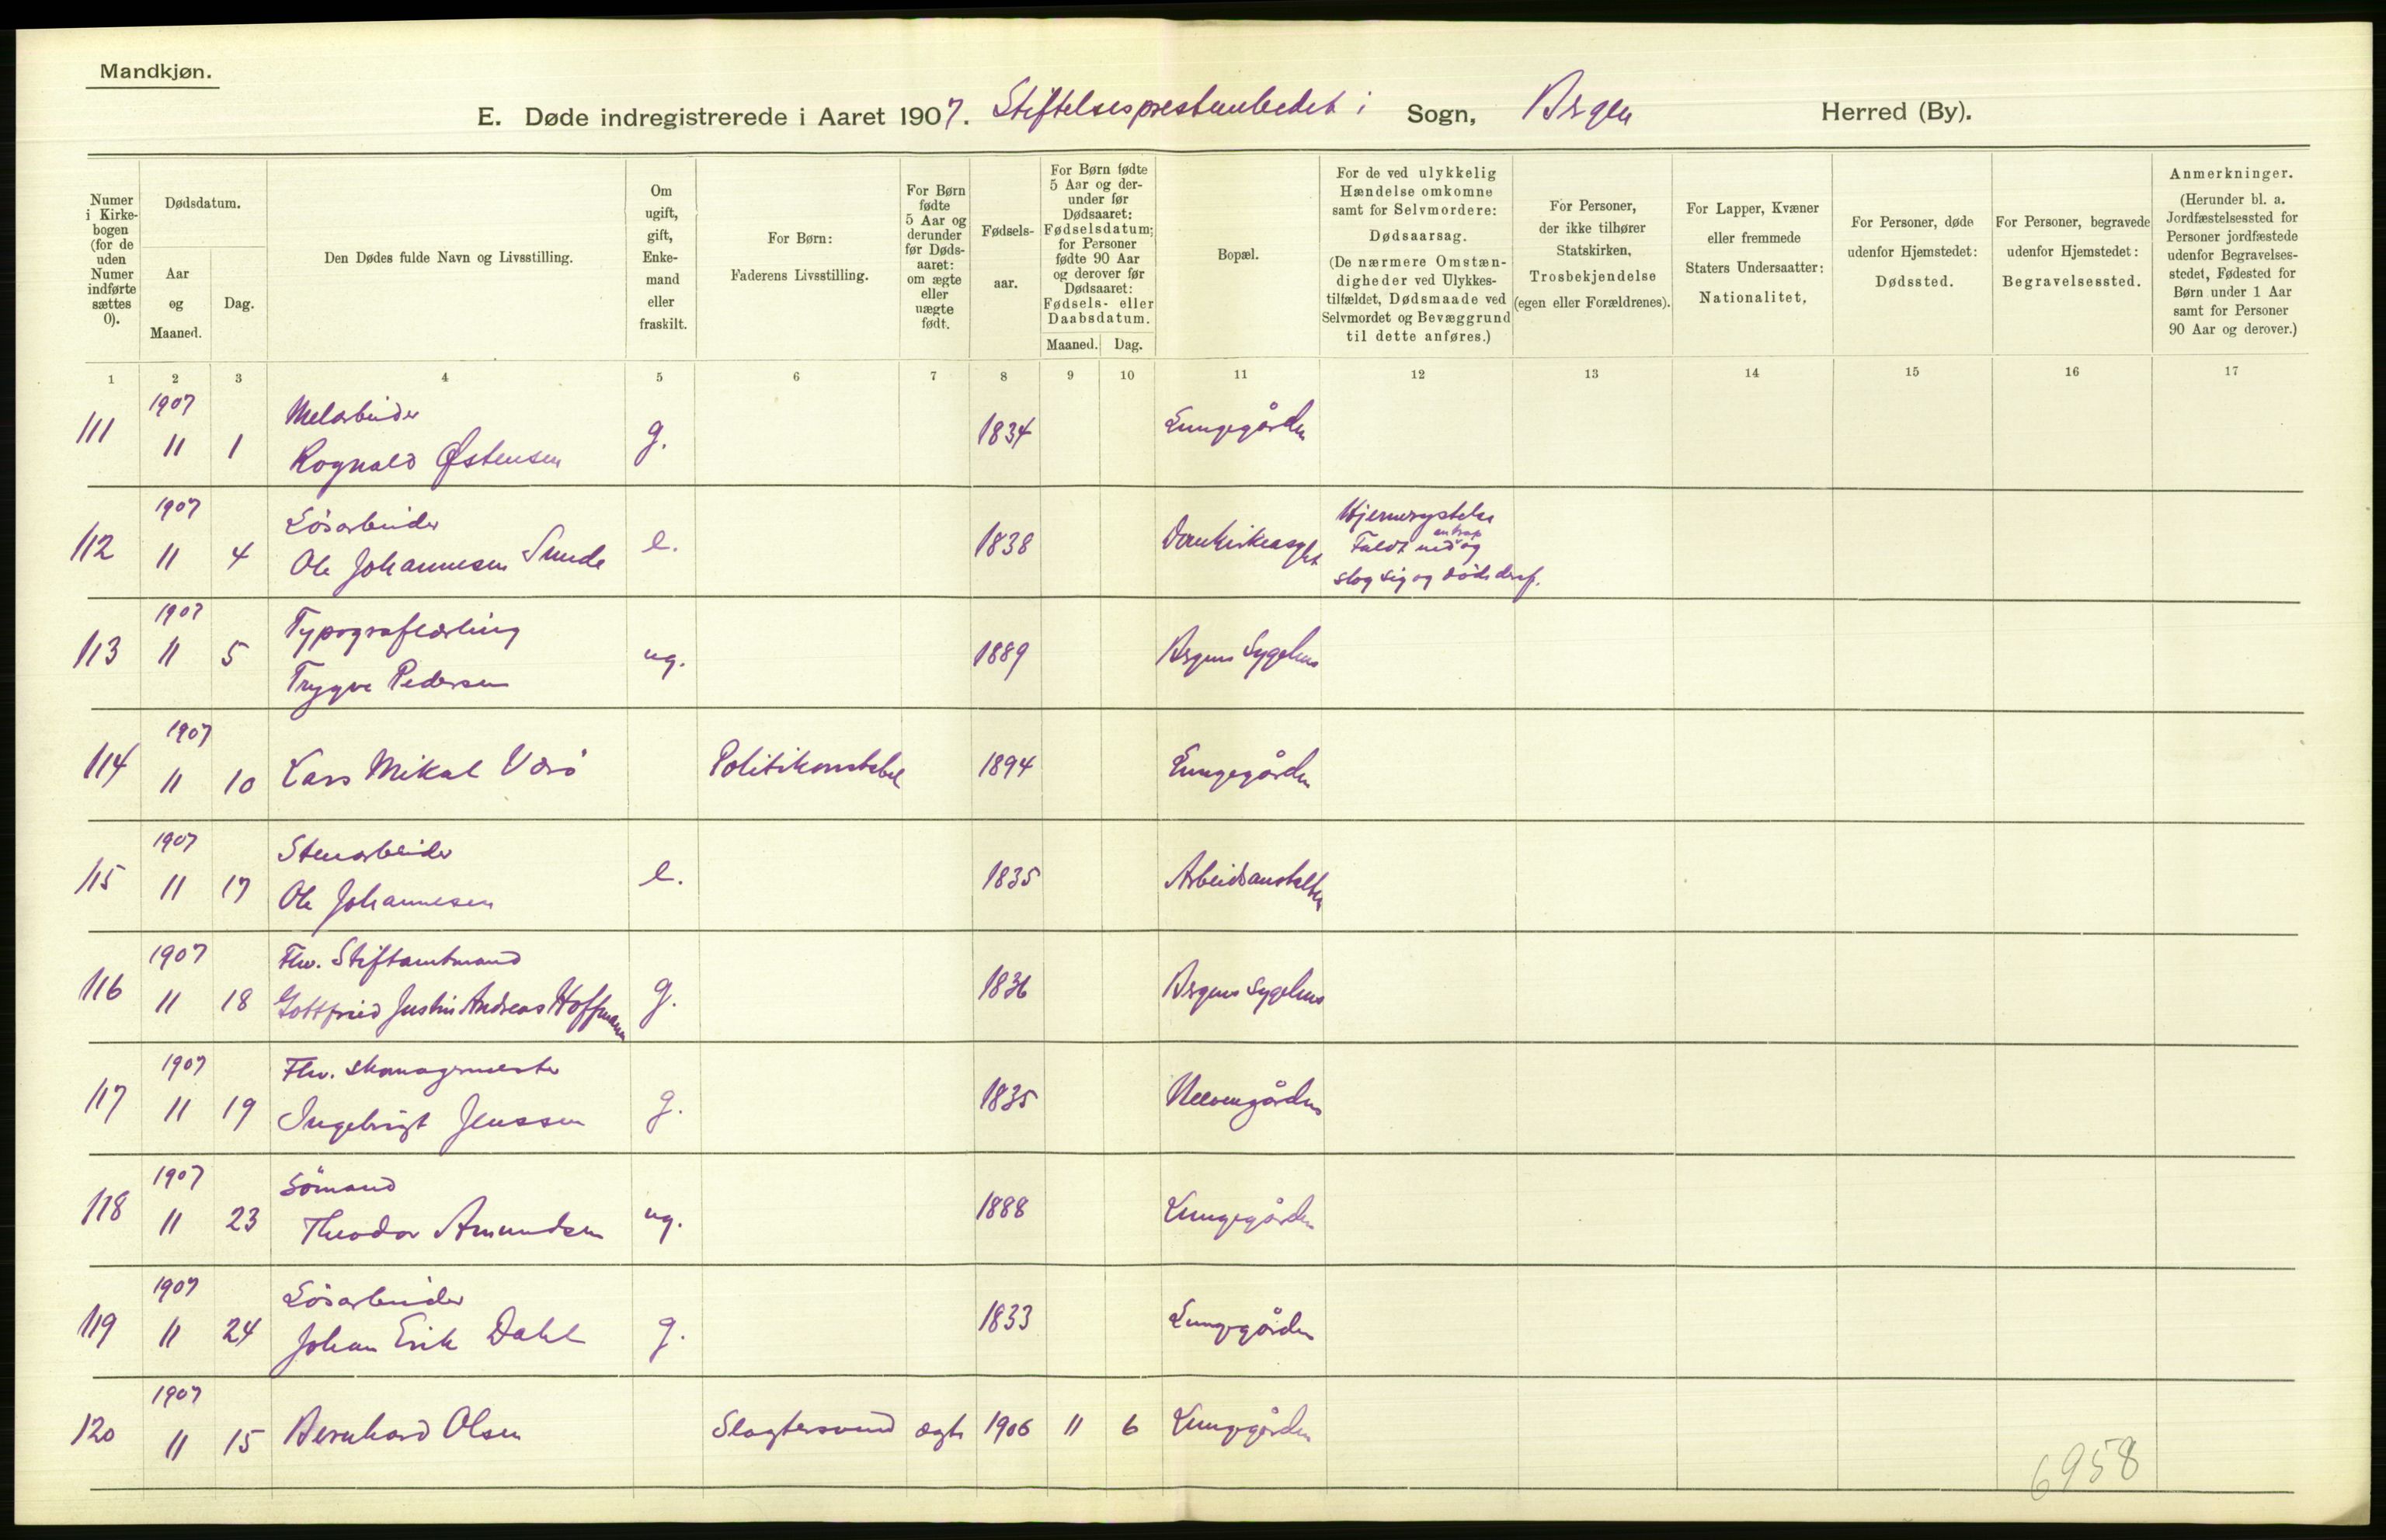 Mandkjøn.
E. Døde indregistrerede i Aaret 1907. Stiftelsesprestembedet i Sogn, Bergen Herred (By).
Numer i Kirkebogen (for de uden Numer indførte sættes 0).
Dødsdatum.
Aar og Maaned.
Dag.
Den Dødes fulde Navn og Livsstilling.
Om ugift, gift, Enkemand eller fraskilt.
For Børn: Faderens Livsstilling.
For Børn fødte 5 Aar og derunder før Dødsaaret: om ægte eller uægte født.
Fødselsaar.
For Børn fødte 5 Aar og derunder før Dødsaaret: Fødselsdatum; for Personer fødte 90 Aar og derover før Dødsaaret: Fødsels- eller Daabsdatum.
Maaned. Dag.
Bopæl.
For de ved ulykkelig Hændelse omkomne samt for Selvmordere: Dødsaarsag. (De nærmere Omstændigheder ved Ulykkestilfældet, Dødsmaade ved Selvmordet og Bevæggrund til dette anføres.)
For Personer, der ikke tilhører Statskirken, Trosbekjendelse (egen eller Forældrenes).
For Lapper, Kvæner eller fremmede Staters Undersaatter: Nationalitet,
For Personer, døde udenfor Hjemstedet: Dødssted.
For Personer, begravede udenfor Hjemstedet: Begravelsessted.
Anmerkninger. (Herunder bl. a. Jordfæstelsessted for Personer jordfæstede udenfor Begravelsesstedet, Fødested for Børn under 1 Aar samt for Personer 90 Aar og derover.)
1 2 3 4 5 6 7 8 9 10 11 12 13 14 15 16 17
1907 Melarbeider
111 11 1 Rognald Østensen g. 1834 Lungegården
1907 Lösarbeider Hjernerystelse
112 11 4 Ole Johannesen Sunde e. 1838 Faldt ned en trap og
slog sig og døde deraf.
1907 Typograflærling
113 11 5 Trygve Pedersen ug. 1889 Bergens Sygehus
1907
114 11 10 Lars Mikal Värö Politikonstabel 1894 Lungegården
1907 Stenarbeider
115 11 17 Ole Johannesen e. 1835 Arbeidsanstalten
1907 Fhv. Stiftamtmand
116 11 18 Gottfried Justin Andreas Hoffmann g. 1836 Bergens Sygehus
1907 Fhv.
117 11 19 Ingebrigt Jenssen g. 1835
1907 Sömand
118 11 23 Theodor Amundsen ug. 1888 Lungegården
1907 Lösarbeider
119 11 24 Johan Erik Dahl g. 1833 Lungegården
1907
120 11 15 Bernhard Olsen Slagtersvend ægte 1906 11 6 Lungegården
6958